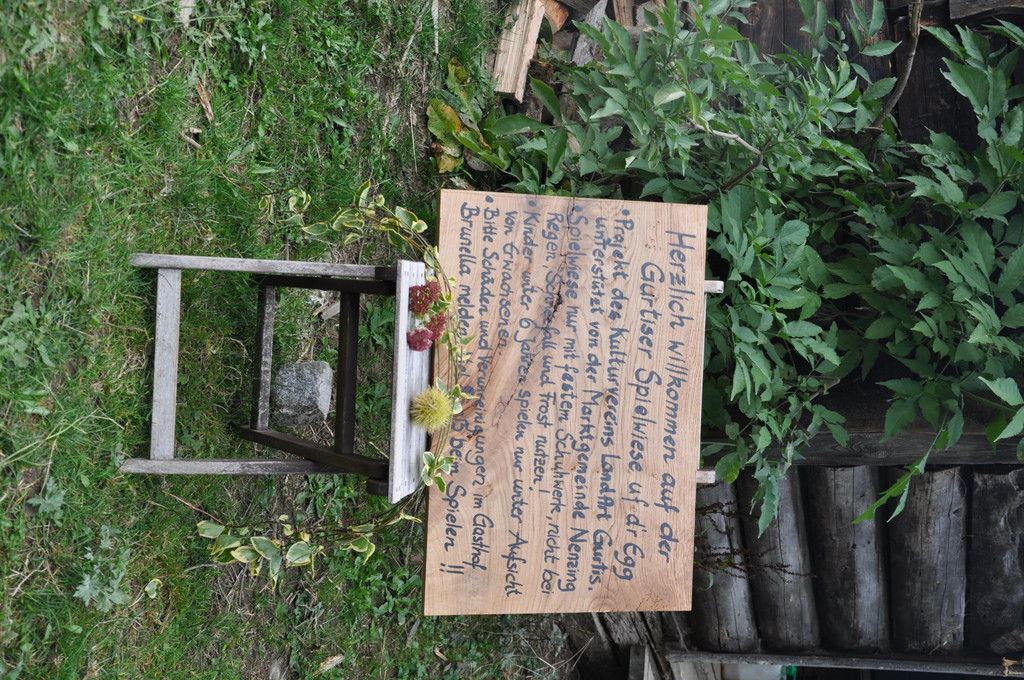 Herzlich willkommen auf der
Gurtiser Spielwiese uf dr Egg
• Projekt des Kulturvereins LandArt Gurtis.
unterstützt von der Marktgemeinde Nenzing
• Spielwiese nur mit festem Schuhwerk, nicht bei
Regen, Schneefall und Frost nutzen!
• Kinder unter 6 Jahren spielen nur unter Aufsicht
von Erwachsenen.
• Bitte Schäden und Verunreinigungen im Gasthof
Brunella melden. beim Spielen!!